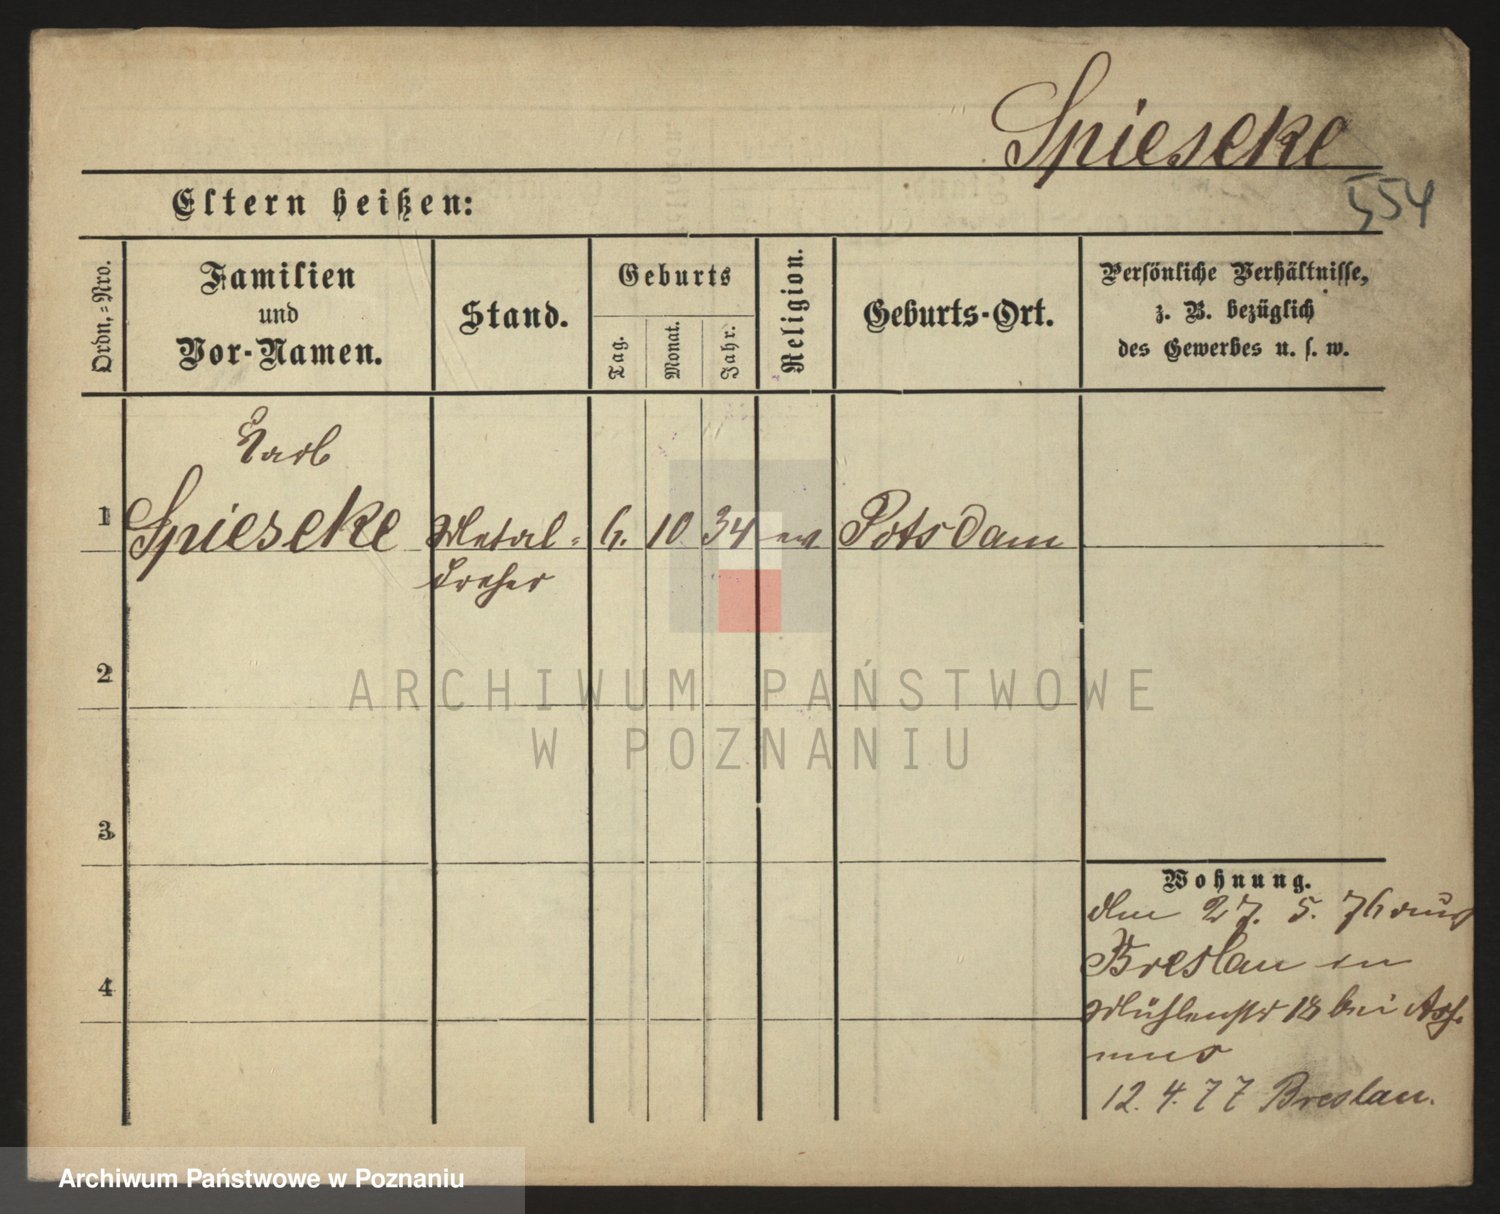 Spieseke
554
Eltern heißen:
Ordn.-Nro.
Familien
und
Vor-Namen.
Stand.
Geburts
Tag.
Monat.
Jahr.
Religion.
Geburts-Ort.
Persönliche Verhältnisse,
z. B. bezüglich
des Gewerbes u. s. w.
Karl
1 Spieseke Metal- 6. 10 34 ev Potsdam
dreher
2
3
4
Wohnung.
den 27. 5. 76 aus
Breslau in
Mühlenstr 18 bei
12. 4. 77 Breslau.
ARCHIWUM PAŃSTWOWE
W POZNANIU
Archiwum Państwowe w Poznaniu